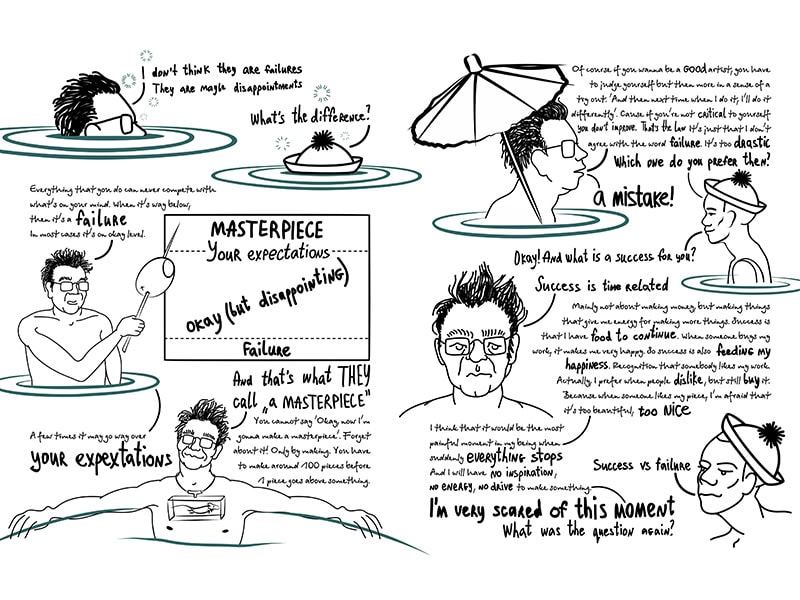 I don't think they are failures
They are maybe disappointments
What's the difference?
Everything that you do can never compete with
what's on your mind. When it's way below,
then it's a failure
In most cases it's on okay level.
MASTERPIECE
Your expectations
okay (but disappointing)
Failure
And that's what THEY
call „a MASTERPIECE"
A few times it may go way over
your expextations
You cannot say 'Okay now I'm
gonna make a masterpiece'. Forget
about it! Only by making. You have
to make around 100 pieces before
1 piece goes above something.
Of course if you wanna be a GOOD artist, you have
to judge yourself but then more in a sense of a
try out. 'And then next time when I do it, I'll do it
differently'. Cause if you're not critical to yourself
you don't improve. That's the law. It's just that I don't
agree with the word failure. It's too drastic
Which one do you prefer then?
a mistake!
Okay! And what is a success for you?
Success is time related
Mainly not about making money, but making things
that give me energy for making more things. Success is
that I have food to continue. When someone buys my
work, it makes me very happy. So success is also feeding my
happiness. Recognition that somebody likes my work.
Actually, I prefer when people dislike, but still buy it.
Because when someone likes my piece, I'm afraid that
it's too beautiful, too NICE
I think that it would be the most
painful moment in my being when
suddenly EVERYTHING STOPS
And I will have no inspiration,
no energy, no drive to make something.
I'm very scared of this moment
Success vs failure
What was the question again?